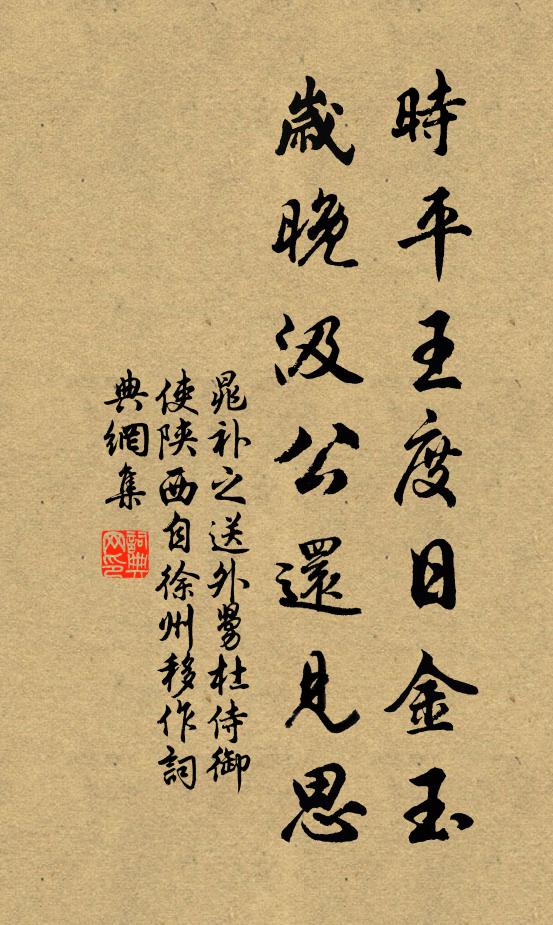 時平王度日金玉
歲晚汲公還見思
晁補之送外舅杜侍御
使陝西自徐州移作詞
典網集
詞典網印